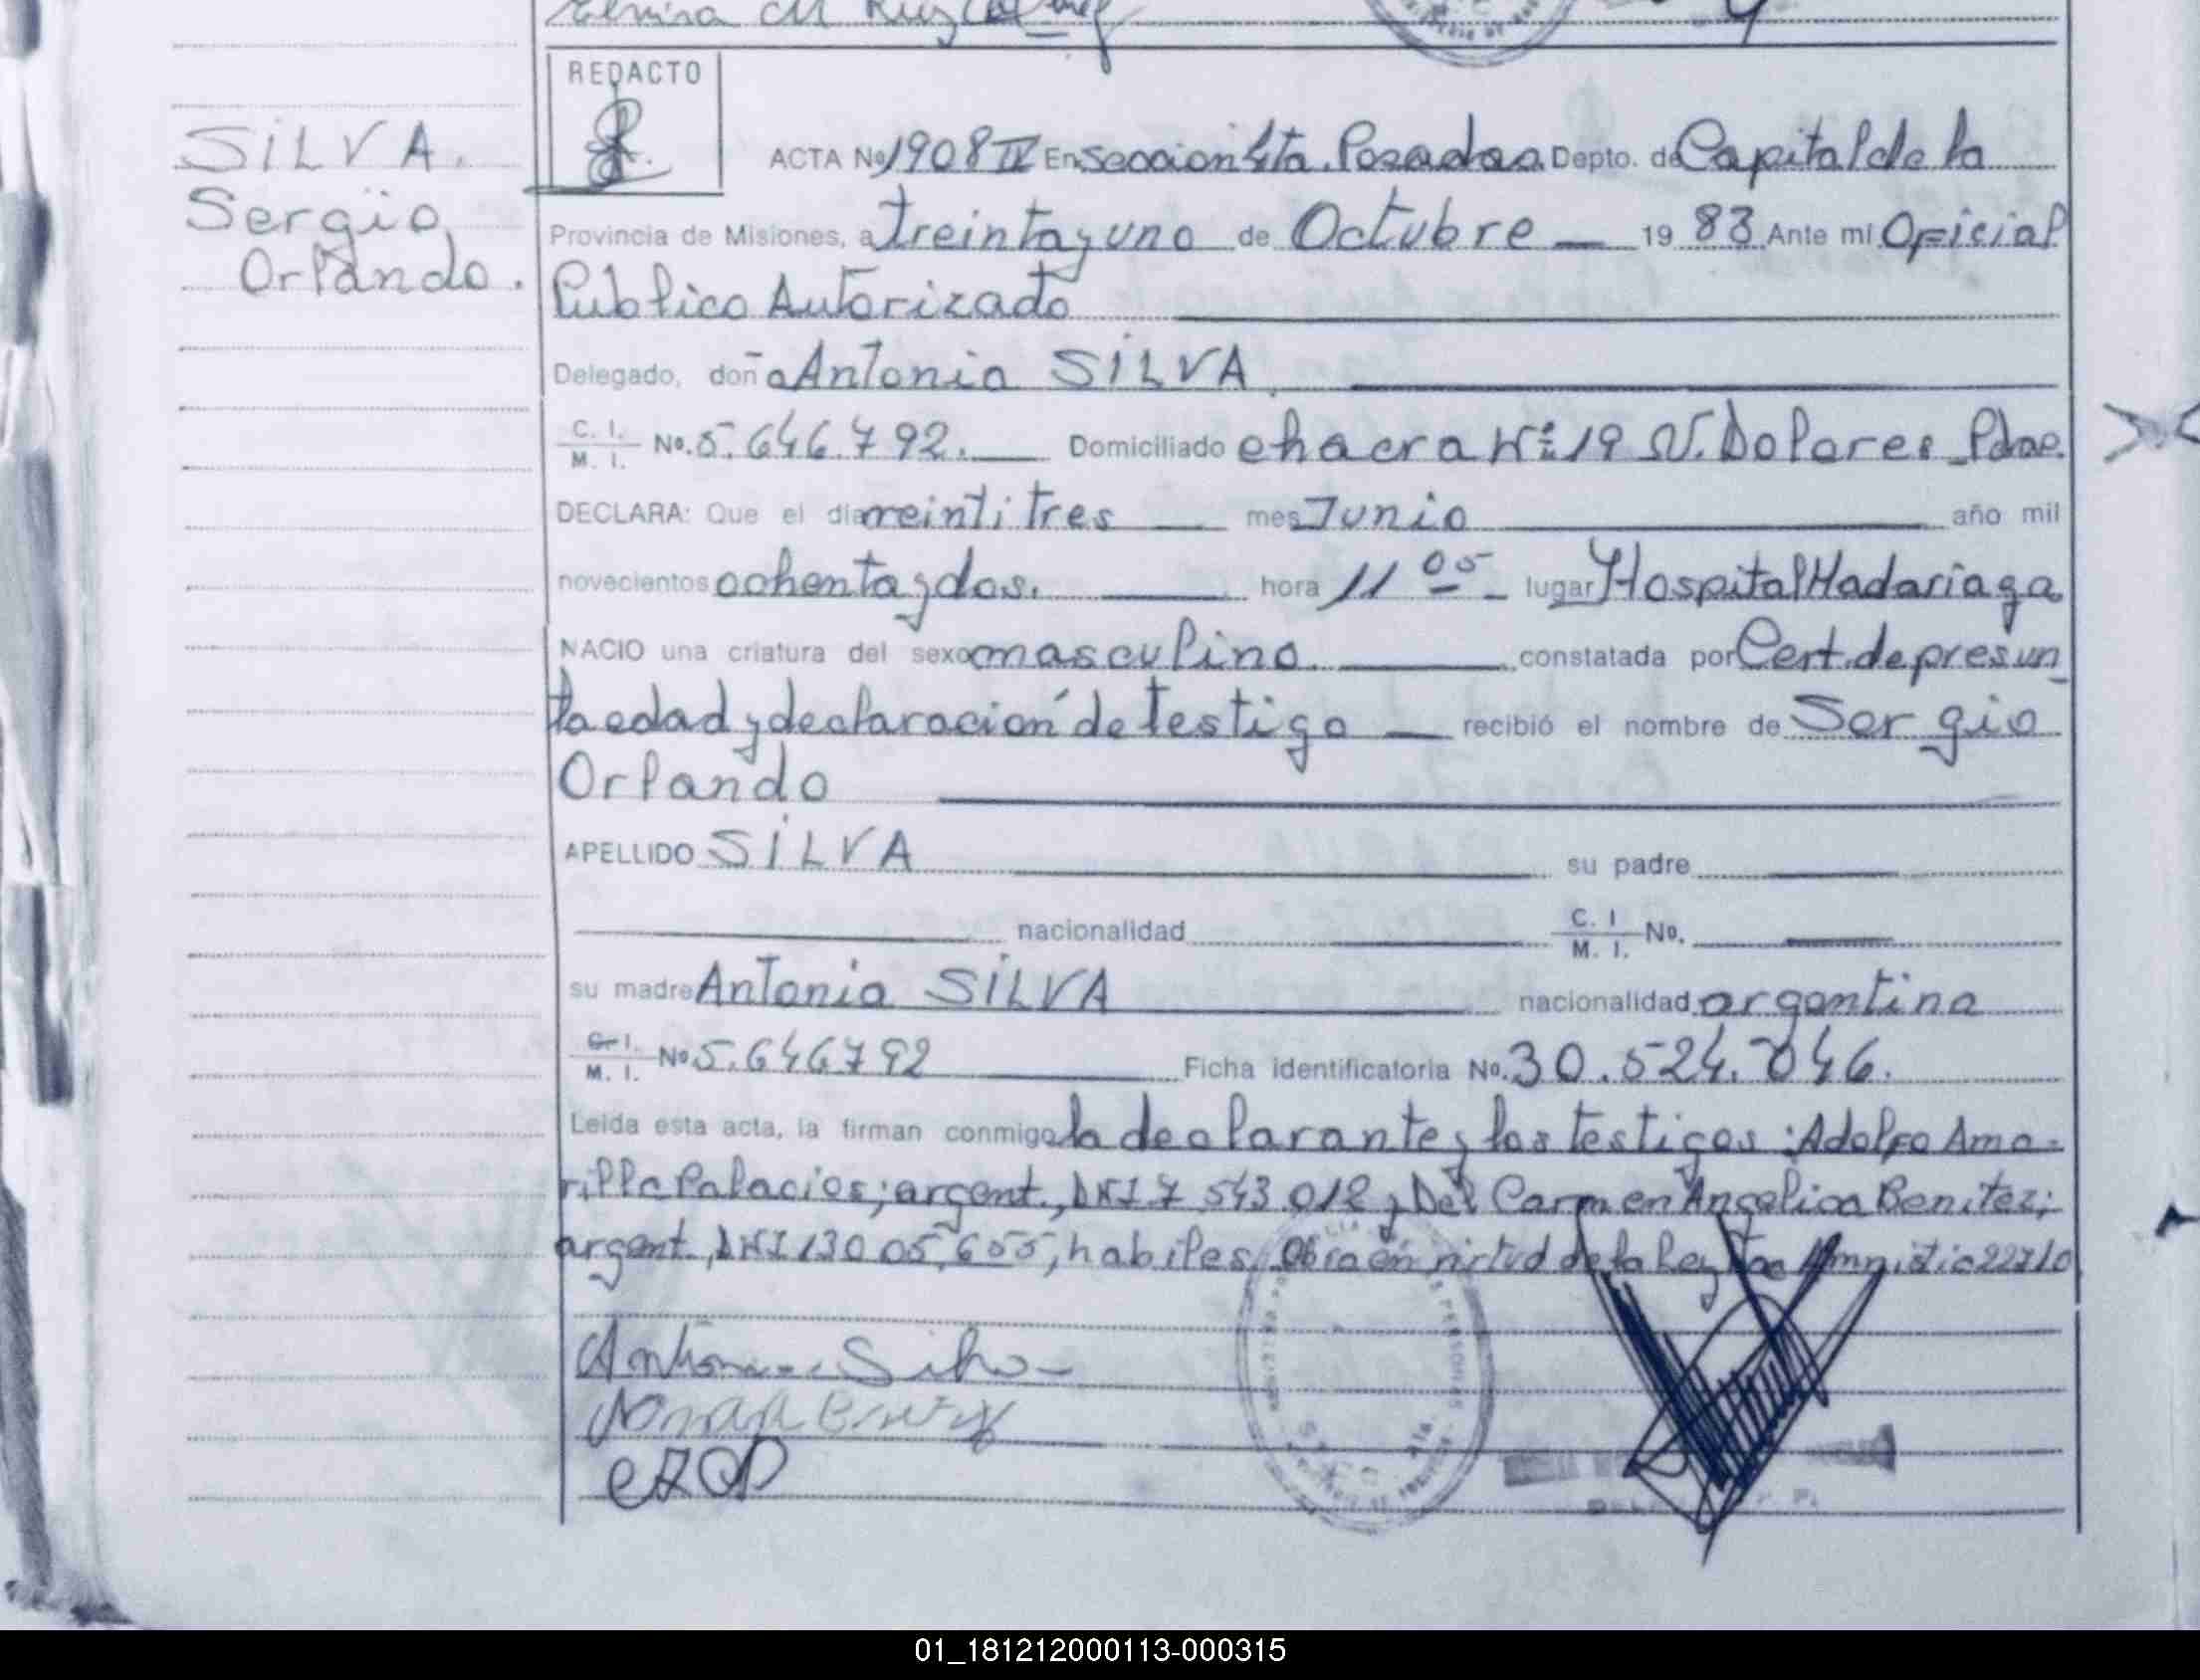 REDACTO
SILVA.
Sergio
Orlando.
ACTA Nº 1908 IV En Seccion 4ta. Posadas Depto. de Capital de la
Provincia de Misiones, a treinta y uno de Octubre — 19 83 Ante mi Oficial
Publico Autorizado
Delegado, doña Antonia SILVA
C. I.
M. I. No. 5.646.792. Domiciliado chacra Nº 19 V. Dolores Pdas.
DECLARA: Que el dia veintitres mes Junio año mil
novecientos ochenta y dos. hora 11 05 lugar Hospital Madariaga
NACIO una criatura del sexo masculino. constatada por Cert. de presun
ta edad y declaración de testigo — recibió el nombre de Sergio
Orlando
APELLIDO SILVA su padre
nacionalidad C. I M. I. No.
su madre Antonia SILVA nacionalidad argentina
C. I.
M. I. Nº 5.646792 Ficha identificatoria No. 30.524.046.
Leida esta acta, la firman conmigo la declarante y los testigos: Adolfo Ama-
rilla Palacios; argent., DNI 7 543.012 y Del Carmen Angelica Benitez;
argent., DNI 13005.655, habiles. Obra en virtud de la Ley de Amnistia 22710
Antonia Silva
01_181212000113-000315